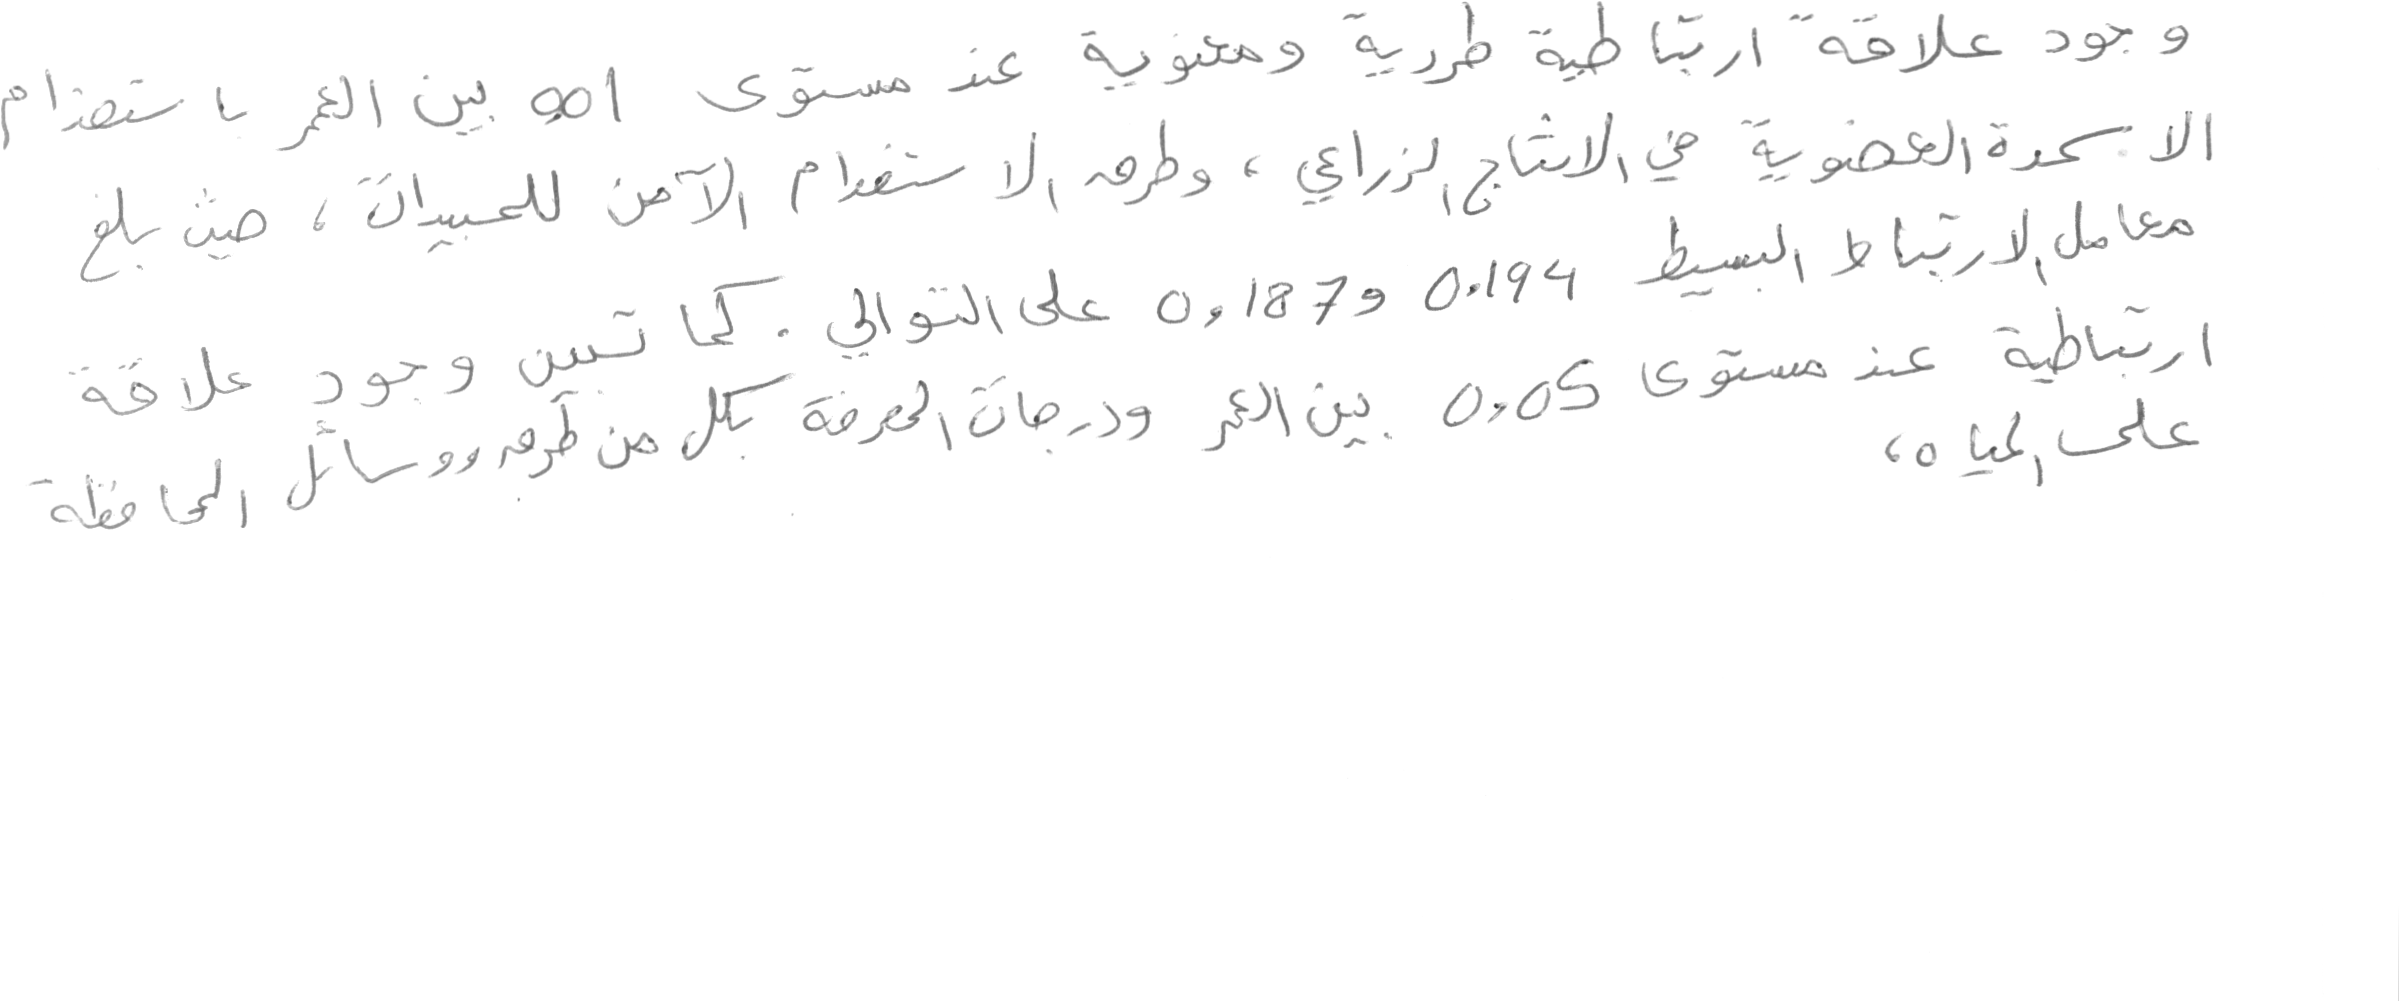 وجود علاقة ارتباطية طردية ومعنوية عند مستوى 0.01 بين العمر باستخدام
الاسمدة العضوية في الانتاج الزراعي، وطرق الاستخدام الآمن للمبيدات، حيث بلغ
معامل الارتباط البسيط 0.194 و 0,187 على التوالي. كما تبين وجود علاقة
ارتباطية عند مستوى 0,05 بين العمر ودرجات المعرفة بكل من طرق ووسائل المحافظة
على المياه،